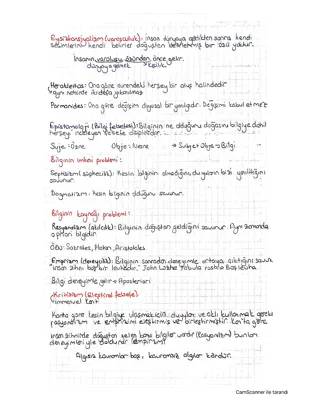 Egzistansiyalizm (varoluşculuk): insan dünyaya geldikten sonra kendi
seçimlerini kendi belirler doğuştan belirlenmiş bir özü yoktur.
İnsanın varoluşu özünden önce gelir.
dünyaya gelmek kişilik
Herakleitos: Ona göre evrendeki herşey bir oluş halindedir
aynı nehirde iki defa yıkanılmaz
Parmenides: Ona göre değişim duyusal bir yanılgıdır. Değişimi kabul etmez
Epistamoloji (Bilgi felsefesi): Bilginin ne olduğunu doğasını bilgiye dahil
herşeyi inceleyen felsefe disiplinidir.
Suje: Özne Obje: Nesne → Suje + Obje = Bilgi
Bilginin imkanı problemi:
Septisizm (şüphecilik): Kesin bilginin olmadığını, duyuların bizi yanılttığını
savunur.
Dogmatizm: Kesin bilginin olduğunu savunur.
Bilginin kaynağı problemi:
Rasyonalizm (akılcılık): Bilginin doğuştan geldiğini savunur. Aynı zamanda
a priori bilgidir
Öncü: Sokrates, Platon, Aristoteles
Empirizm (deneycilik): Bilginin sonradan deneyimle ortaya çıktığını savunur
"insan zihni boş bir levhadır." John Locke Tabula rasa
Bilgi deneyimle gelir → Aposteriori
Kritisizm (Eleştirel felsefe):
Immanuel Kant
Kanta göre kesin bilgiye ulaşmak için duyuları ve aklı kullanmak gerekir
rasyonalizm ve empirizmi eleştirmiş ve birleştirmiştir. Kant'a göre
insan zihninde doğuştan gelen bazı bilgiler vardır (rasyonalizm) bunları
deneyimleriyle doldurur (empirizm)
Algısız kavramlar boş, kavramsız algılar kördür.
CamScanner ile tarandı